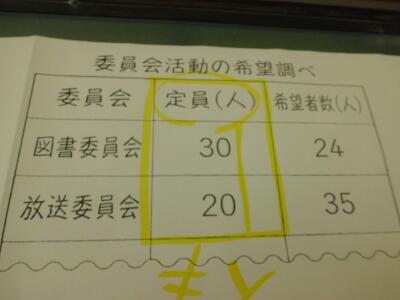 委員会活動の希望調べ
委員会 定員(人) 希望者数(人)
図書委員会 30 24
放送委員会 20 35